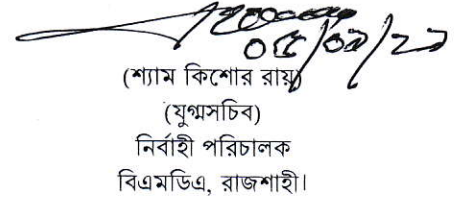 ০৫/০৯/২১
(শ্যাম কিশোর রায়)
(যুগ্মসচিব)
নির্বাহী পরিচালক
বিএমডিএ, রাজশাহী।